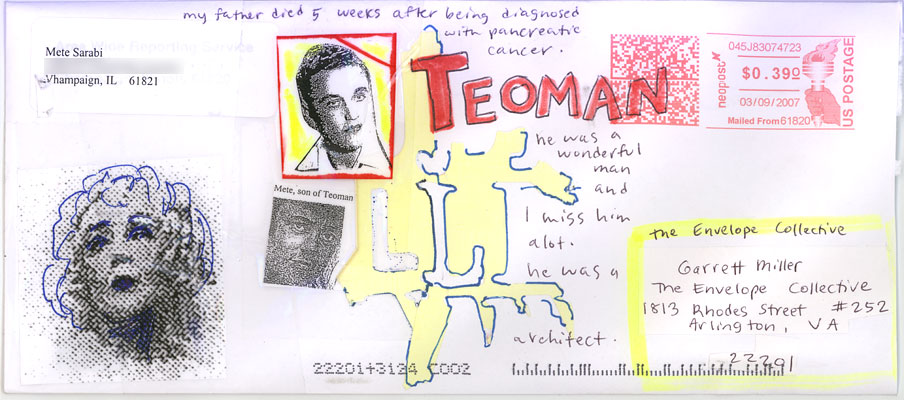 my father died 5 weeks after being diagnosed
with pancreatic
cancer.
Mete Sarabi
Vhampaign, IL 61821
TEOMAN
neopost
045J83074723
$0.390
03/09/2007
Mailed From 61820
US POSTAGE
he was a
wonderful
man
and
I miss him
alot.
he was a
architect.
Mete, son of Teoman
the Envelope Collective
Garrett Miller
The Envelope Collective
1813 Rhodes Street #252
Arlington, VA
22201
22201+3124 C002